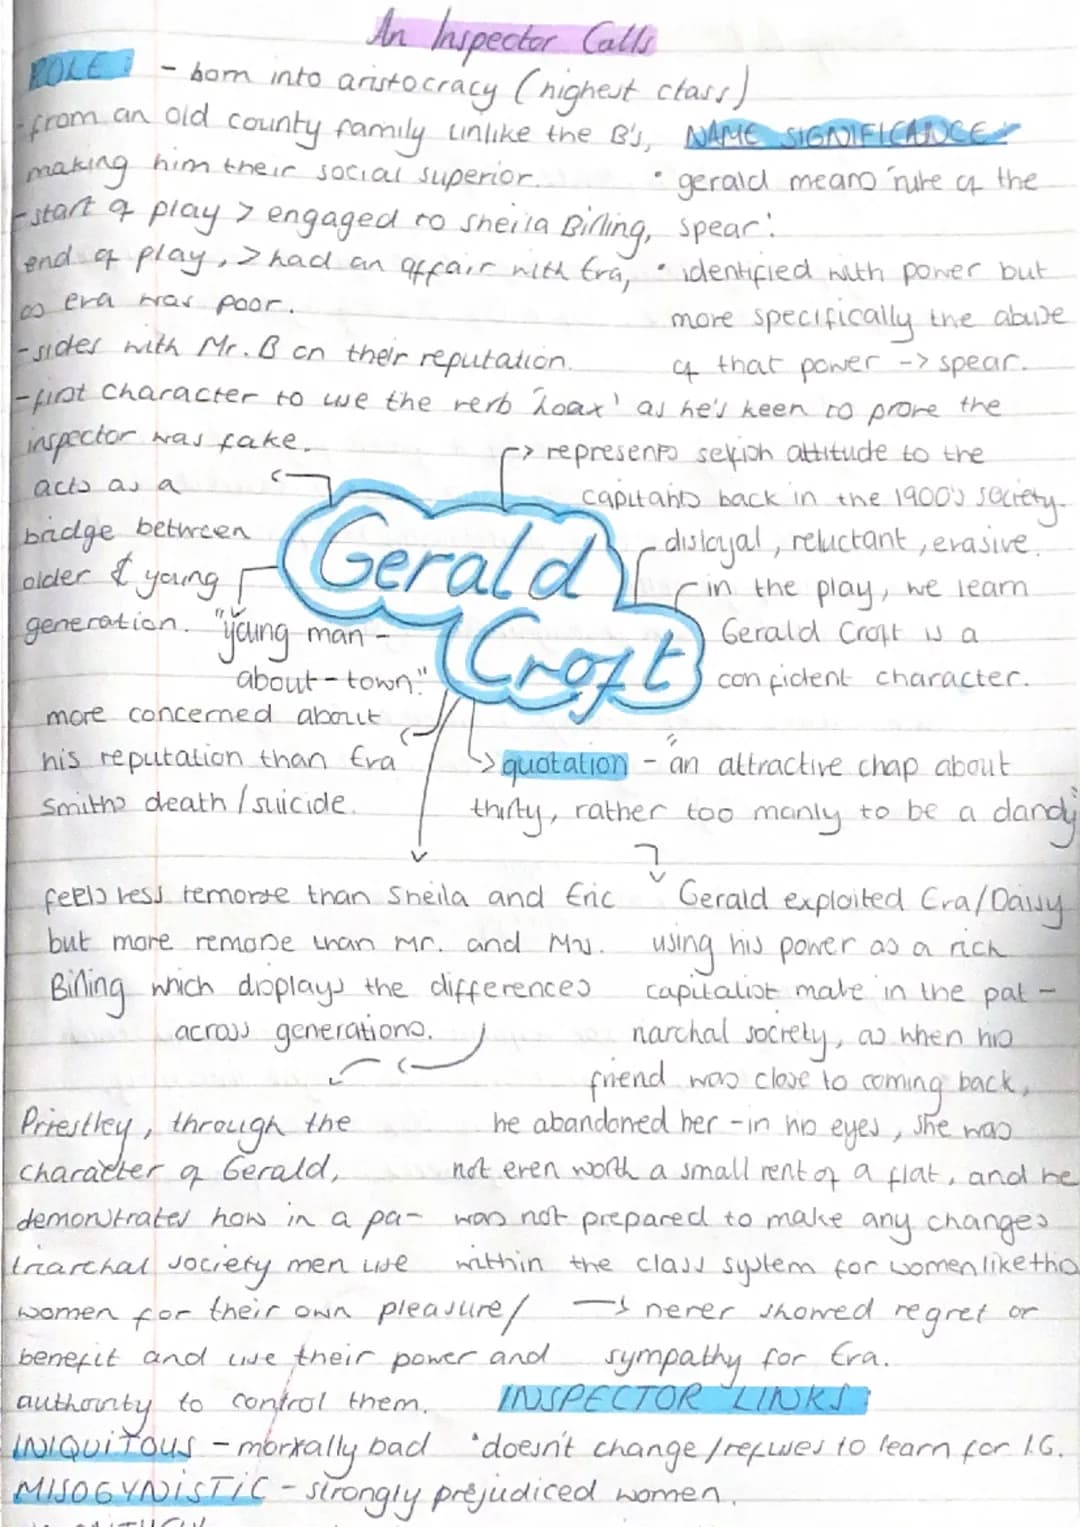 An Inspector Calls
ROLE: - born into aristocracy (highest class)
-from an old county family unlike the B's,
making him their social superior.
-start of play > engaged to Sheila Birling,
end of play, > had an affair with Eva,
as eva was poor.
-sides with Mr. B on their reputation.
-first character to use the verb 'hoax' as he's keen to prove the
inspector was fake.
NAME SIGNIFICANCE:
• gerald means 'rule of the
spear'.
• identified with power but
more specifically the abuse
of that power -> spear.
-> represents selfish attitude to the
capitalists back in the 1900's society.
acts as a
bridge between
older & young
generation.
Gerald
Croft
disloyal, reluctant, evasive.
in the play, we learn
Gerald Croft is a
confident character.
"young man -
about-town."
more concerned about
his reputation than Eva
Smiths death/suicide.
-> quotation - "an attractive chap about
thirty, rather too manly to be a dandy"
feels less remorse than Sheila and Eric
but more remorse than Mr. and Mrs.
Birling which displays the differences
across generations.
Gerald exploited Eva/Daisy
using his power as a rich
capitalist male in the pat-
riarchal society, as when his
friend was close to coming back,
he abandoned her - in his eyes, she was
not even worth a small rent of a flat, and he
was not prepared to make any changes
within the class system for women like tho
-> never showed regret or
sympathy for Eva.
Priestley, through the
character of Gerald,
demonstrates how in a pa-
triarchal society men use
women for their own pleasure/
benefit and use their power and
authority to control them.
INSPECTOR LINKS:
•doesn't change/refuses to learn for I.G.
INIQUITOUS - morally bad
MISOGYNISTIC - strongly prejudiced women.